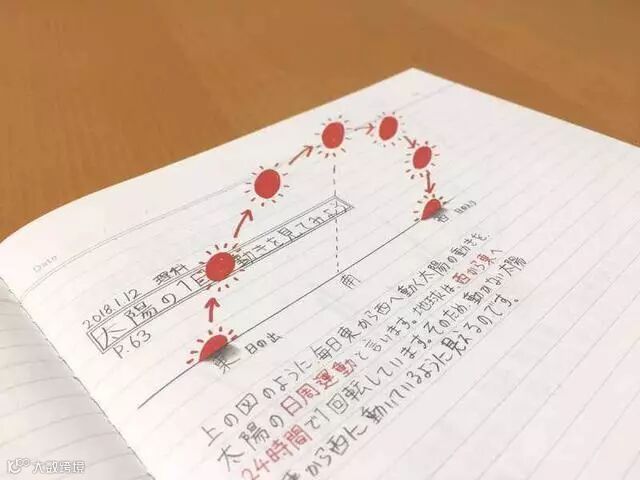 Date
2018.1.12 理科
太陽の1日の動きを見てみよう
P.63
東 日の出
南
西 日の入り
上の図のように、毎日東から西へ動く太陽の動きを、
太陽の日周運動と言います。地球は西から東へ
24時間で1回転しています。そのため、動かない太陽
から西に動いているように見えるのです。
大数跨境